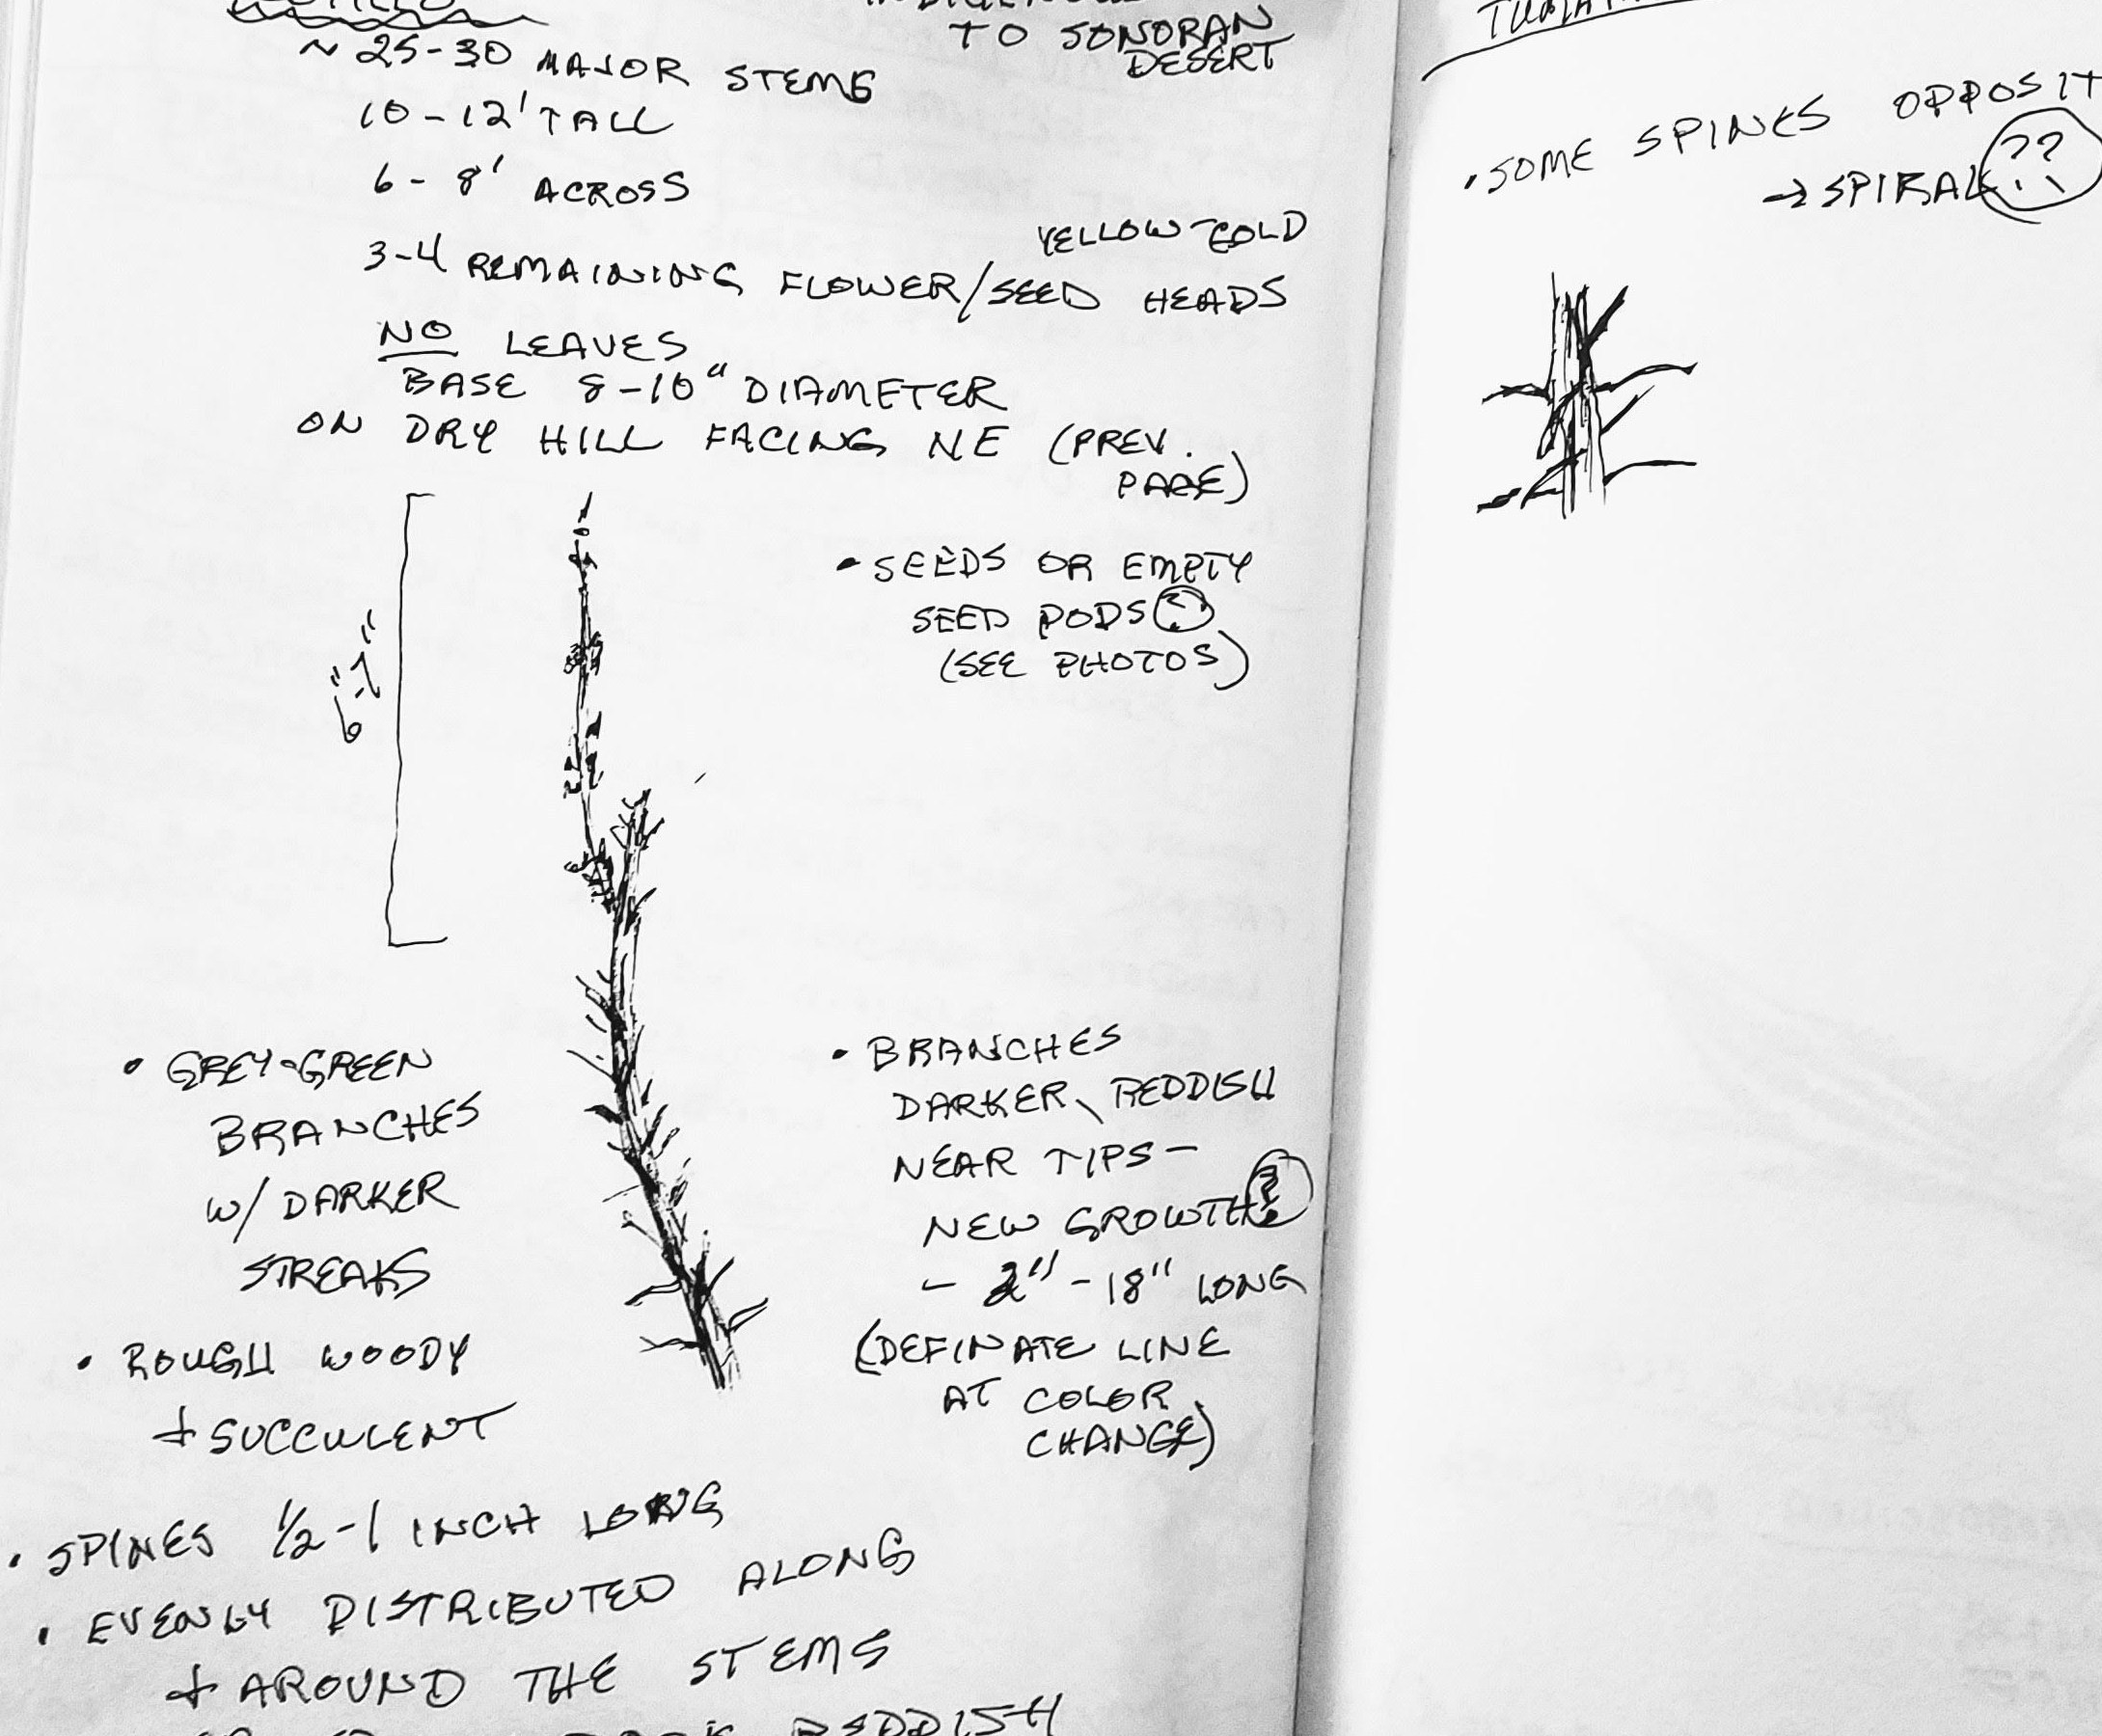 ~ 25-30 MAJOR STEMS
10-12' TALL
6-8' ACROSS
3-4 REMAINING FLOWER/SEED HEADS
YELLOW-GOLD
NO LEAVES
BASE 8-10" DIAMETER
ON DRY HILL FACING NE (PREV.
PAGE)
TO SONORAN
DESERT
6"-7"
• SEEDS OR EMPTY
SEED PODS?
(SEE PHOTOS)
• GREY-GREEN
BRANCHES
W/ DARKER
STREAKS
• ROUGH WOODY
+ SUCCULENT
• BRANCHES
DARKER, REDDISH
NEAR TIPS-
NEW GROWTH?
- 2"-18" LONG
(DEFINATE LINE
AT COLOR
CHANGE)
• SPINES 1/2-1 INCH LONG
• EVENLY DISTRIBUTED ALONG
+ AROUND THE STEMS
REDDISH
• SOME SPINES OPPOSIT
→ SPIRAL ??